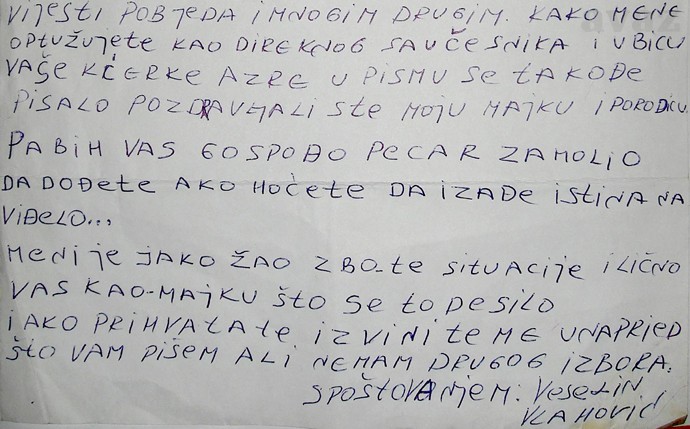 VIJESTI POBJEDA I MNOGIM DRUGIM. KAKO MENE
OPTUŽUJETE KAO DIREKNOG SAUČESNIKA I UBICU
VAŠE KĆERKE AZRE U PISMU SE TAKOĐE
PISALO POZDRAVLJALI STE MOJU MAJKU I PORODICU.
PA BIH VAS GOSPOĐO PECAR ZAMOLIO
DA DOĐETE AKO HOĆETE DA IZAĐE ISTINA NA
VIĐELO...
MENI JE JAKO ŽAO ZBO-TE SITUACIJE I LIČNO
VAS KAO-MAJKU ŠTO SE TO DESILO
I AKO PRIHVATATE IZVINITE ME UNAPRIED
ŠTO VAM PIŠEM ALI NEMAM DRUGOG IZBORA.
SPOŠTOVANJEM: VESELIN
VLAHOVIĆ